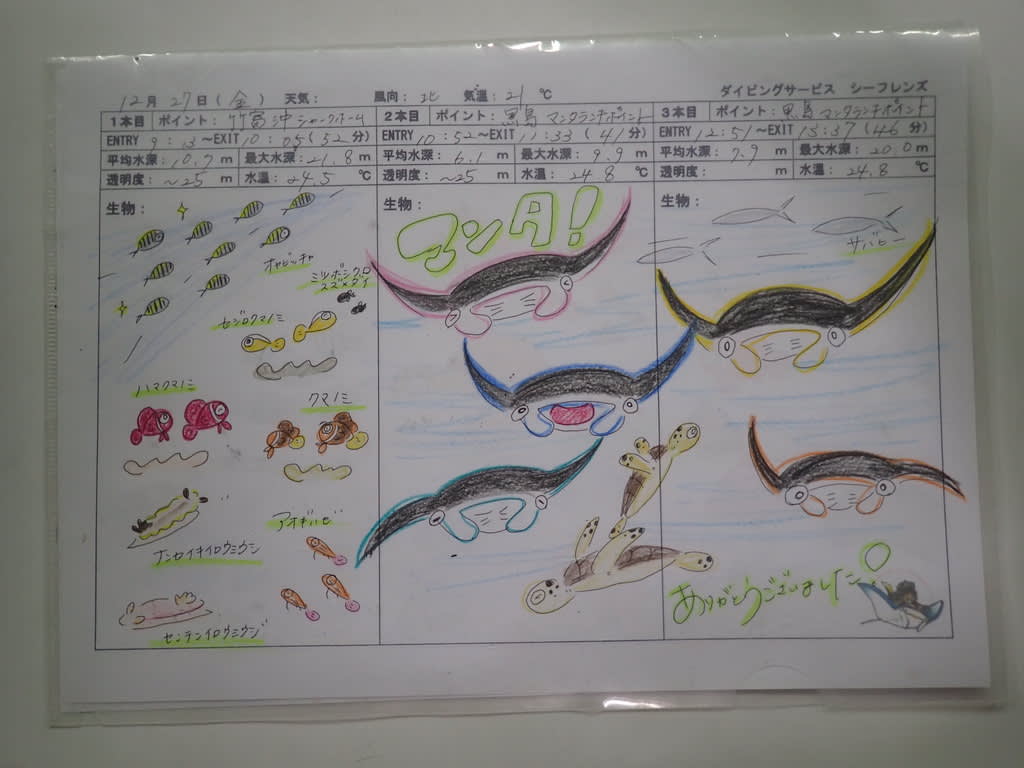 12月27日(金) 天気: 風向: 北 気温: 21 ℃ ダイビングサービス シーフレンズ
1本目 ポイント: 竹富沖シャークホーム
ENTRY 9:13~EXIT 10:05(52分)
平均水深: 10.7 m 最大水深: 21.8 m
透明度: ~25 m 水温: 24.5 ℃
生物:
オヤビッチャ
ミツボシクロ
スズメダイ
セジロクマノミ
ハマクマノミ
クマノミ
アオギハゼ
ナンセイキイロウミウシ
センテンイロウミウシ
2本目 ポイント: 黒島 マンタランチポイント
ENTRY 10:52~EXIT 11:33(41分)
平均水深: 6.1 m 最大水深: 9.9 m
透明度: ~25 m 水温: 24.8 ℃
生物:
マンタ!
3本目 ポイント: 黒島 マンタランチポイント
ENTRY 12:51~EXIT 13:37(46分)
平均水深: 7.9 m 最大水深: 20.0 m
透明度: m 水温: 24.8 ℃
生物:
サバヒー
ありがとうございました。